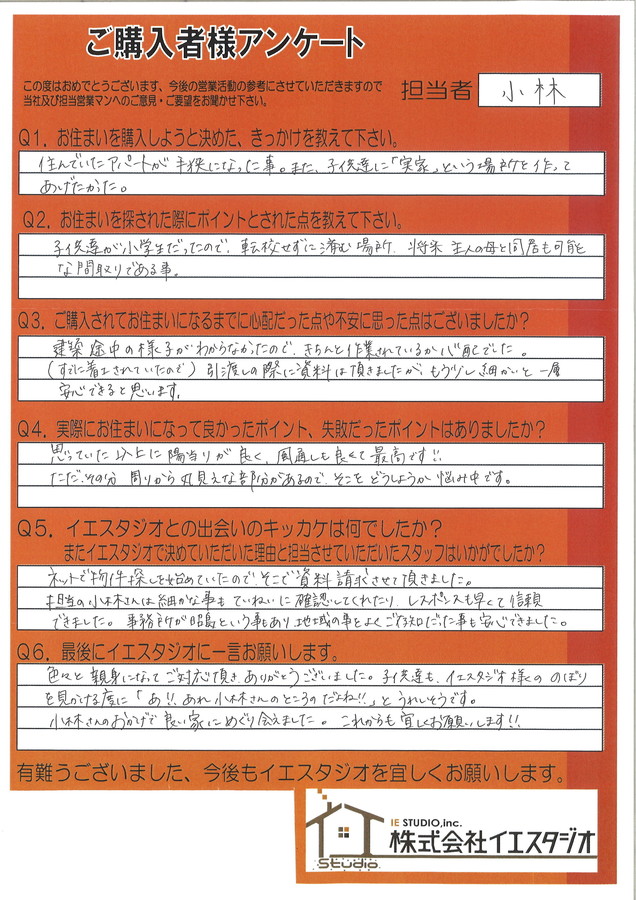 ご購入者様アンケート
この度はおめでとうございます、今後の営業活動の参考にさせていただきますので
当社及び担当営業マンへのご意見・ご要望をお聞かせ下さい。
担当者 小林
Q1. お住まいを購入しようと決めた、きっかけを教えて下さい。
住んでいたアパートが手狭になった事。また、子供達に「実家」という場所を作って
あげたかた。
Q2. お住まいを探された際にポイントとされた点を教えて下さい。
子供達が小学生だったので、転校せずに済む場所、将来主人の母と同居も可能
な間取りである事。
Q3. ご購入されてお住まいになるまでに心配だった点や不安に思った点はございましたか?
建築途中の様子がわからなかったので、きちんと作業されているか心配でした。
(すでに着工されていたので)引渡しの際に資料は頂きましたが、もう少し細かいと一層
安心できると思います。
Q4. 実際にお住まいになって良かったポイント、失敗だったポイントはありましたか?
思っていた以上に陽当りが良く、風通しも良くて最高です!!
ただ、その分 周りから丸見えな部分があるので、そこをどうしようか悩み中です。
Q5. イエスタジオとの出会いのキッカケは何でしたか?
またイエスタジオで決めていただいた理由と担当させていただいたスタッフはいかがでしたか?
ネットで物件探しを始めていたので、そこで資料請求させて頂きました。
担当の小林さんは細かな事もていねいに確認してくれたり、レスポンスも早くて信頼
できました。事務所が昭島という事もあり、地域の事をよくご存知だった事も安心できました。
Q6. 最後にイエスタジオに一言お願いします。
色々と親身になってご対応頂きありがとうございました。子供達も、イエスタジオ様の のぼり
を見かける度に「あ!!、あれ小林さんのところのだよね!!」とうれしそうです。
小林さんのおかげで良い家にめぐり会えました。これからも宜しくお願いします!!
有難うございました、今後もイエスタジオを宜しくお願いします。
IE STUDIO,inc.
株式会社イエスタジオ
Studio